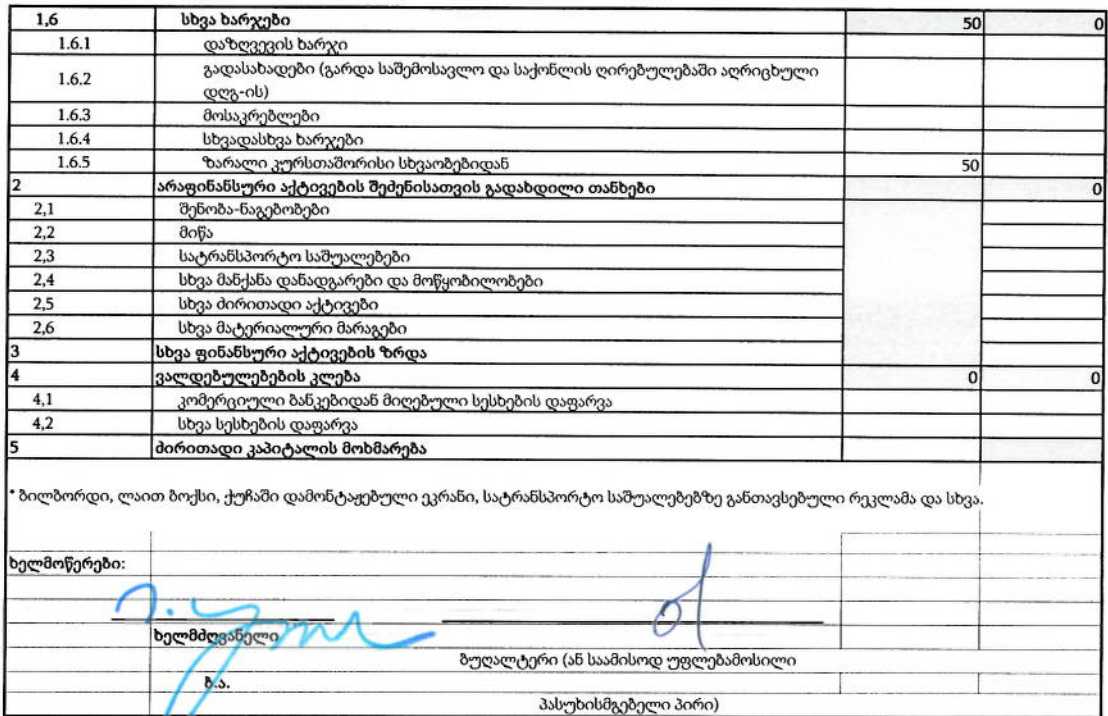 1,6 სხვა ხარჯები 50 0
1.6.1 დაზღვევის ხარჯი
1.6.2 გადასახადები (გარდა საშემოსავლო და საქონლის ღირებულებაში აღრიცხული
დღგ-ის)
1.6.3 მოსაკრებლები
1.6.4 სხვადასხვა ხარჯები
1.6.5 ზარალი კურსთაშორისი სხვაობებიდან 50
2 არაფინანსური აქტივების შეძენისათვის გადახდილი თანხები 0
2,1 შენობა-ნაგებობები
2,2 მიწა
2,3 სატრანსპორტო საშუალებები
2,4 სხვა მანქანა დანადგარები და მოწყობილობები
2,5 სხვა ძირითადი აქტივები
2,6 სხვა მატერიალური მარაგები
3 სხვა ფინანსური აქტივების ზრდა
4 ვალდებულებების კლება 0 0
4,1 კომერციული ბანკებიდან მიღებული სესხების დაფარვა
4,2 სხვა სესხების დაფარვა
5 ძირითადი კაპიტალის მოხმარება
* ბილბორდი, ლაით ბოქსი, ქუჩაში დამონტაჟებული ეკრანი, სატრანსპორტო საშუალებებზე განთავსებული რეკლამა და სხვა.
ხელმოწერები:
ხელმძღვანელი
ბუღალტერი (ან საამისოდ უფლებამოსილი
ბ.ა.
პასუხისმგებელი პირი)